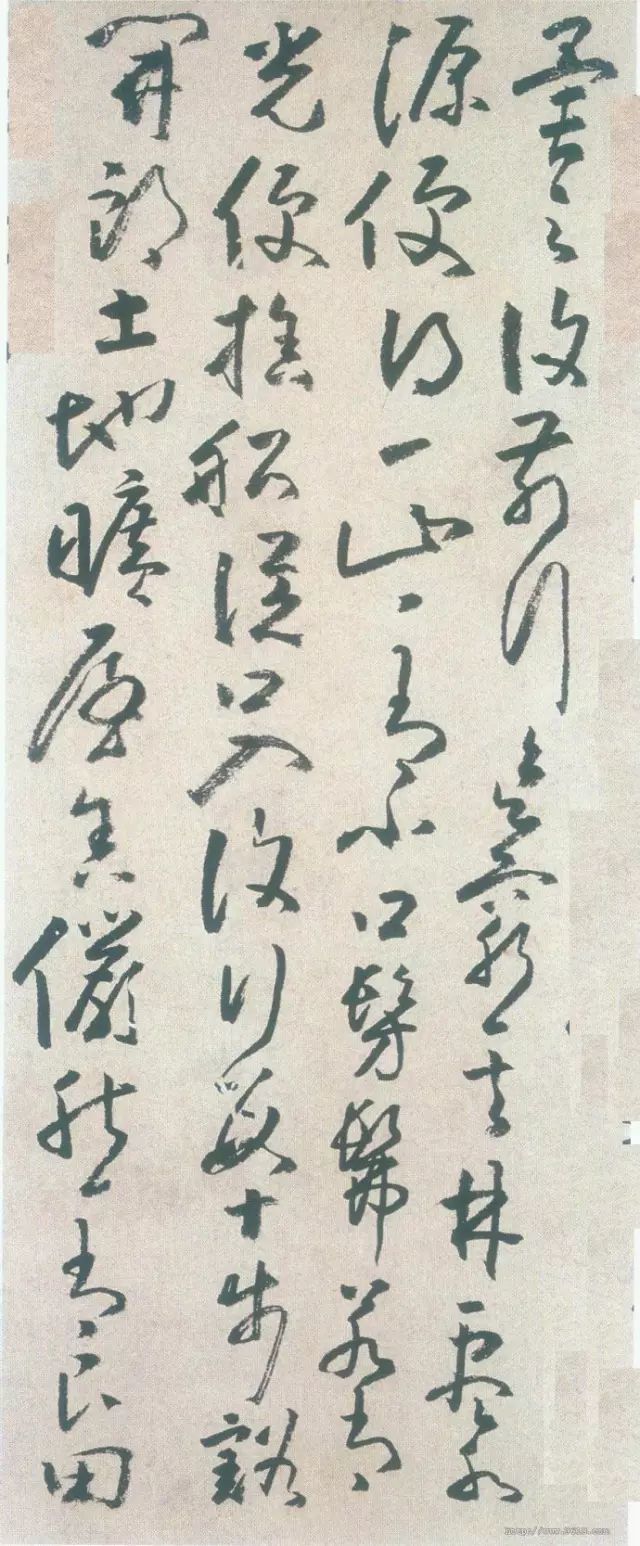 異之復前行欲窮其林盡水
源便得一山山有小口髣髴若有
光便捨船從口入復行數十步豁
開朗土地曠屋舍儼然有良田
http://www.9610.com